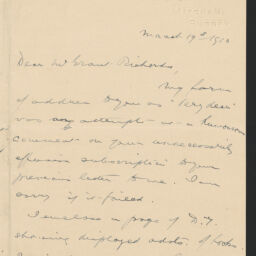 March 19th 1910
Dear Mr Grant Richards,
My form
of address to you as "Very dear"
was any attempt at a humorous
comment on your unnecessarily
effusive subscription to your
previous letter to me. I am
sorry if it failed.
I enclose a page of D.T.
showing displayed advts. of books.